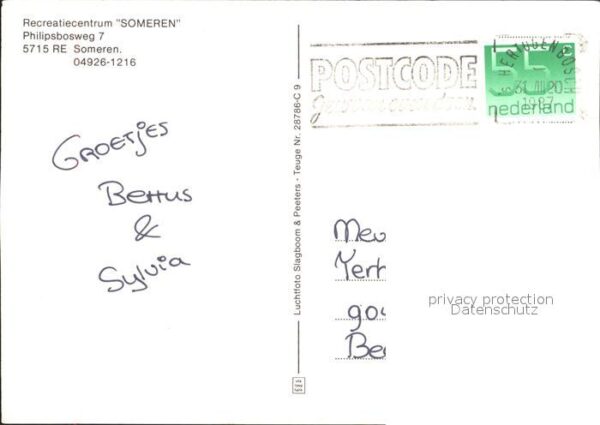 Recreatiecentrum "SOMEREN"
Philipsbosweg 7
5715 RE Someren.
04926-1216
Groetjes
Bertus
&
Sylvia
Luchtfoto Slagboom & Peeters - Teuge Nr. 28786-C 9
POSTCODE
's HERTOGENBOSCH
1987
55
nederland
Mev
go
Be
privacy protection
Datenschutz